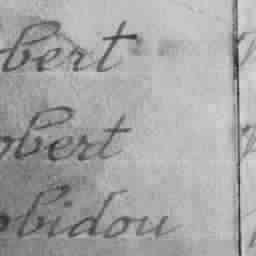 bert
obert
obidou